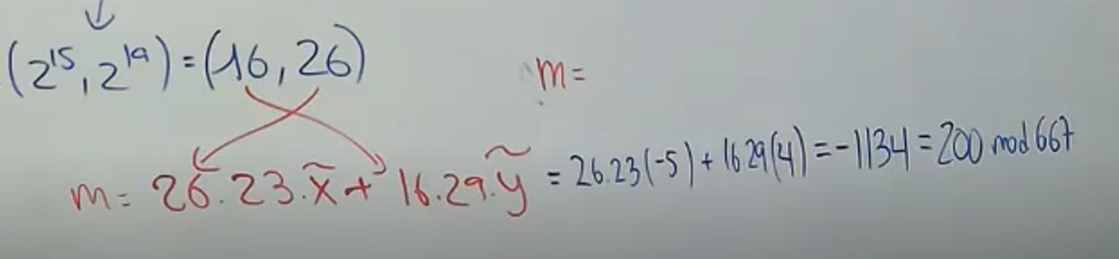 (2¹⁵, 2¹⁹) = (16, 26)
m =
m = 26.23.x̃ + 16.29.ỹ = 26.23(-5) + 16 29(4) = -1134 = 200 mod 667